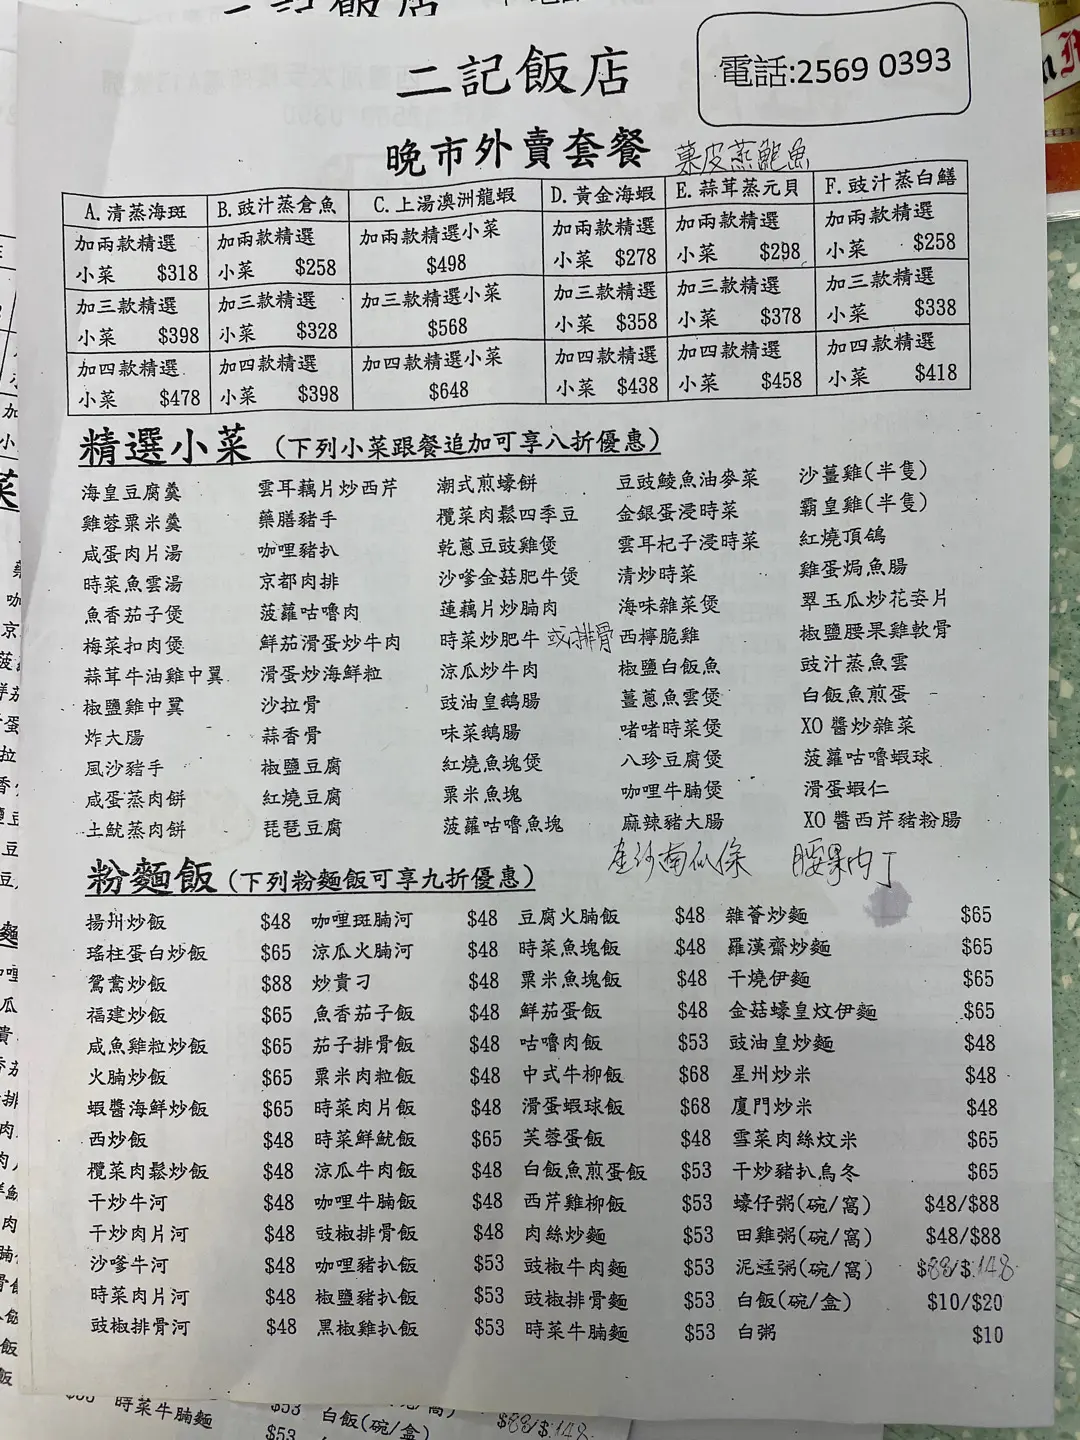 二記飯店
電話:2569 0393
晚市外賣套餐
菓皮蒸鮑魚
A. 清蒸海斑 B. 豉汁蒸倉魚 C. 上湯澳洲龍蝦 D. 黃金海蝦 E. 蒜茸蒸元貝 F. 豉汁蒸白鱔
加兩款精選 加兩款精選 加兩款精選小菜 加兩款精選 加兩款精選 加兩款精選
小菜 $318 小菜 $258 $498 小菜 $278 小菜 $298 小菜 $258
加三款精選 加三款精選 加三款精選小菜 加三款精選 加三款精選 加三款精選
小菜 $398 小菜 $328 $568 小菜 $358 小菜 $378 小菜 $338
加四款精選 加四款精選 加四款精選小菜 加四款精選 加四款精選 加四款精選
小菜 $478 小菜 $398 $648 小菜 $438 小菜 $458 小菜 $418
精選小菜 (下列小菜跟餐追加可享八折優惠)
海皇豆腐羹 雲耳藕片炒西芹 潮式煎蠔餅 豆豉鯪魚油麥菜 沙薑雞(半隻)
雞蓉粟米羹 藥膳豬手 欖菜肉鬆四季豆 金銀蛋浸時菜 霸皇雞(半隻)
咸蛋肉片湯 咖哩豬扒 乾蔥豆豉雞煲 雲耳杞子浸時菜 紅燒頂鴿
時菜魚雲湯 京都肉排 沙嗲金菇肥牛煲 清炒時菜 雞蛋焗魚腸
魚香茄子煲 菠蘿咕嚕肉 蓮藕片炒腩肉 海味雜菜煲 翠玉瓜炒花姿片
梅菜扣肉煲 鮮茄滑蛋炒牛肉 時菜炒肥牛 或排骨 西檸脆雞 椒鹽腰果雞軟骨
蒜茸牛油雞中翼 滑蛋炒海鮮粒 涼瓜炒牛肉 椒鹽白飯魚 豉汁蒸魚雲
椒鹽雞中翼 沙拉骨 豉油皇鵝腸 薑蔥魚雲煲 白飯魚煎蛋
炸大腸 蒜香骨 味菜鵝腸 啫啫時菜煲 XO 醬炒雜菜
風沙豬手 椒鹽豆腐 紅燒魚塊煲 八珍豆腐煲 菠蘿咕嚕蝦球
咸蛋蒸肉餅 紅燒豆腐 粟米魚塊 咖哩牛腩煲 滑蛋蝦仁
土魷蒸肉餅 琵琶豆腐 菠蘿咕嚕魚塊 麻辣豬大腸 XO 醬西芹豬粉腸
金沙南瓜條 腰果肉丁
粉麵飯 (下列粉麵飯可享九折優惠)
揚州炒飯 $48 咖哩斑腩河 $48 豆腐火腩飯 $48 雜薈炒麵 $65
瑤柱蛋白炒飯 $65 涼瓜火腩河 $48 時菜魚塊飯 $48 羅漢齋炒麵 $65
鴛鴦炒飯 $88 炒貴刁 $48 粟米魚塊飯 $48 干燒伊麵 $65
福建炒飯 $65 魚香茄子飯 $48 鮮茄蛋飯 $48 金菇蠔皇炆伊麵 $65
咸魚雞粒炒飯 $65 茄子排骨飯 $48 咕嚕肉飯 $53 豉油皇炒麵 $48
火腩炒飯 $65 粟米肉粒飯 $48 中式牛柳飯 $68 星州炒米 $48
蝦醬海鮮炒飯 $65 時菜肉片飯 $48 滑蛋蝦球飯 $68 廈門炒米 $48
西炒飯 $48 時菜鮮魷飯 $65 芙蓉蛋飯 $48 雪菜肉絲炆米 $65
欖菜肉鬆炒飯 $48 涼瓜牛肉飯 $48 白飯魚煎蛋飯 $53 干炒豬扒烏冬 $65
干炒牛河 $48 咖哩牛腩飯 $48 西芹雞柳飯 $53 蠔仔粥(碗/窩) $48/$88
干炒肉片河 $48 豉椒排骨飯 $48 肉絲炒麵 $53 田雞粥(碗/窩) $48/$88
沙嗲牛河 $48 咖哩豬扒飯 $53 豉椒牛肉麵 $53 泥鯭粥(碗/窩) $88/$148
時菜肉片河 $48 椒鹽豬扒飯 $53 豉椒排骨麵 $53 白飯(碗/盒) $10/$20
豉椒排骨河 $48 黑椒雞扒飯 $53 時菜牛腩麵 $53 白粥 $10
時菜牛腩麵 $53 白飯(碗/盒) $88/$148